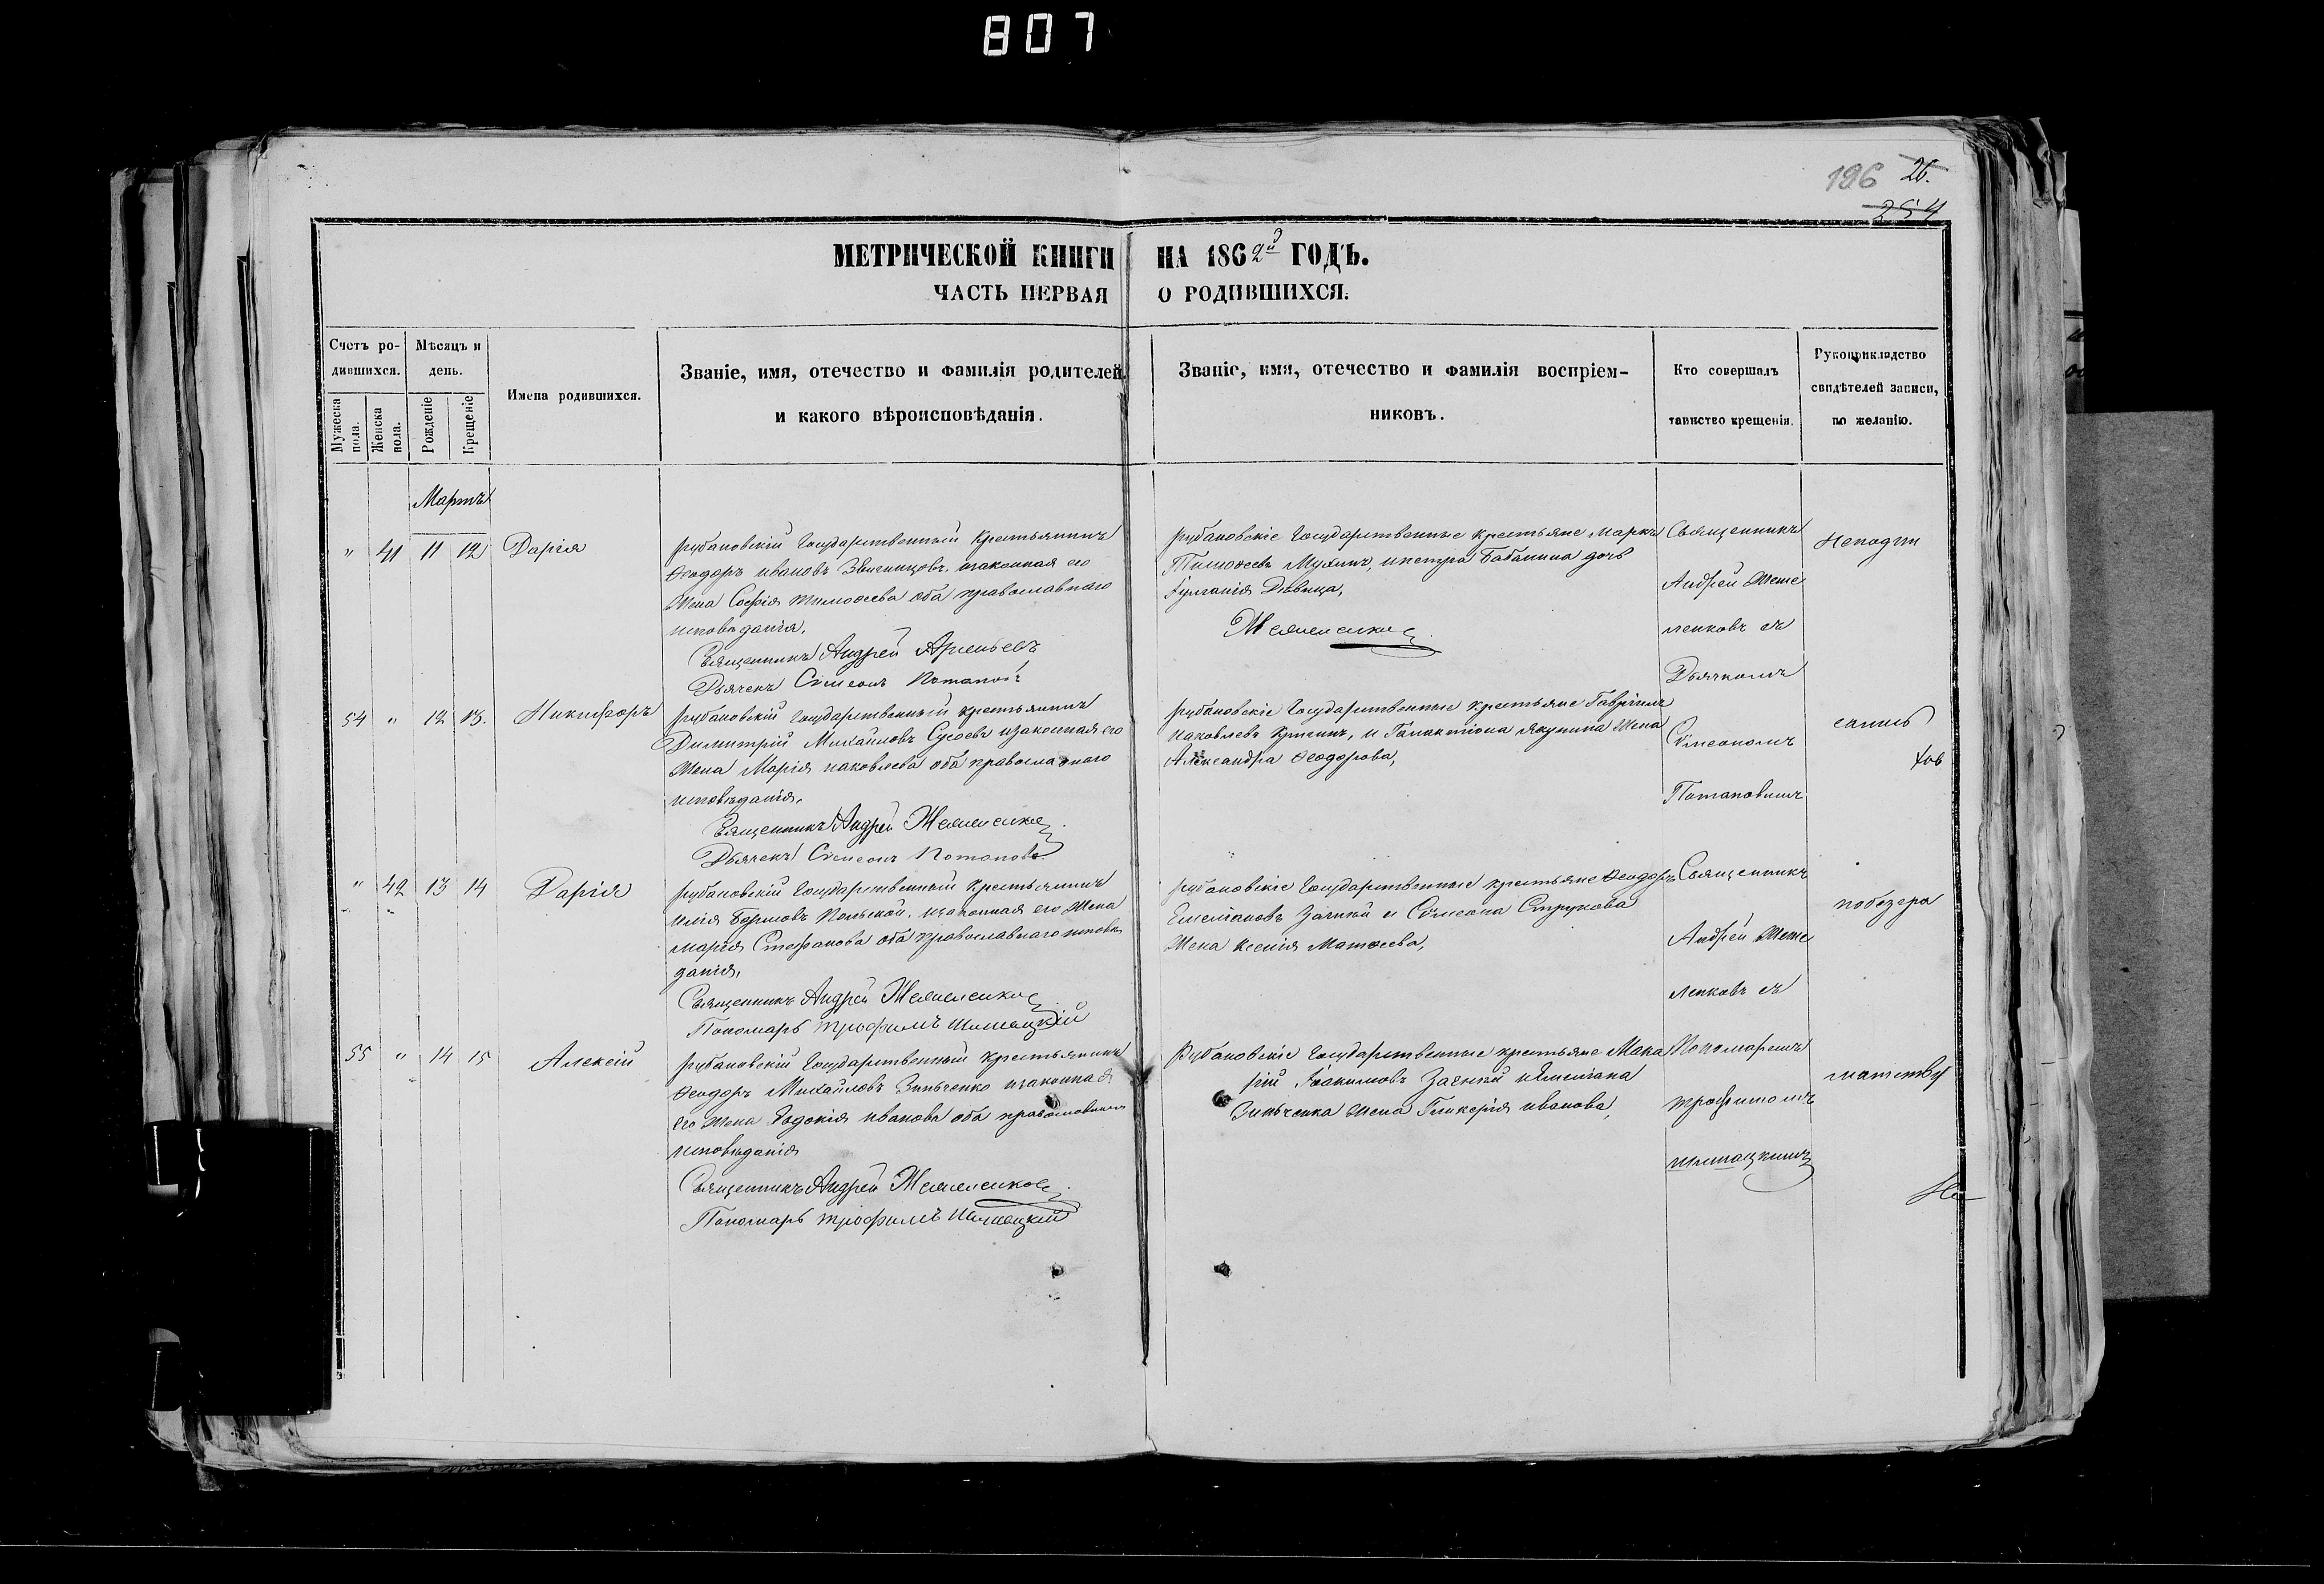 807
196 26.
254
МЕТРИЧЕСКОЙ КНИГИ НА 1862й ГОДЪ.
ЧАСТЬ ПЕРВАЯ О РОДИВШИХСЯ.
Счетъ родившихся.
Мужеска пола.
Женска пола.
Мѣсяцъ и день.
Рожденіе
Крещеніе
Имена родившихся.
Званіе, имя, отечество и фамилія родителей,
и какого вѣроисповѣданія.
Званіе, имя, отечество и фамилія воспріем-
никовъ.
Кто совершалъ
таинство крещенія.
Рукоприкладство
свидѣтелей записи,
по желанію.
Мартъ
" 41 11 12 Дарія
рубановскій Государственный крестьянинъ
Ѳеодоръ ивановъ изаконная его
Жена Софія тимоѳеева оба православнаго
исповѣданія,
Священникъ Андрей
Дьячекъ Сѵмеонъ Потаповъ
рубановскіе Государственные крестьяне маркъ
Тимоѳеевъ Мухинъ, ипетра Бабанина дочь
Дѣвица,
Священникъ
Андрей Жеме
ленковъ съ
Дьячкомъ
Сѵмеономъ
Потаповымъ
54 " 12 13. Никифоръ
рубановскій Государственный крестьянинъ
Димитрій Михайловъ Сусоевъ изаконная его
Жена Марія иаковлева оба православнаго
исповѣданія,
Священникъ Андрей
Дьячекъ Сѵмеонъ Потаповъ
рубановскіе Государственные крестьяне Гавріилъ
иаковлевъ и Галактіона якунина Жена
Александра Ѳеодорова,
" 42 13 14 Дарія
рубановскій Государственный крестьянинъ
илія изаконная его Жена
марія Стефанова оба православнаго исповѣ
данія,
Священникъ Андрей
Пономарь трофимъ
рубановскіе Государственные крестьяне Ѳеодоръ
Емеліановъ и Сѵмеона Струкова
Жена ксенія Матѳеева,
Священникъ
Андрей Жеме
ленковъ съ
Пономаремъ
трофимомъ
55 " 14 15 Алексій
рубановскій Государственный крестьянинъ
Ѳеодоръ Михайловъ Зинченко изаконная
его Жена Евдокія иванова оба православнаго
исповѣданія
Священникъ Андрей
Пономарь трофимъ
рубановскіе Государственные крестьяне Мака
рій иЕмеліана
Зинченка жена Гликерія иванова,